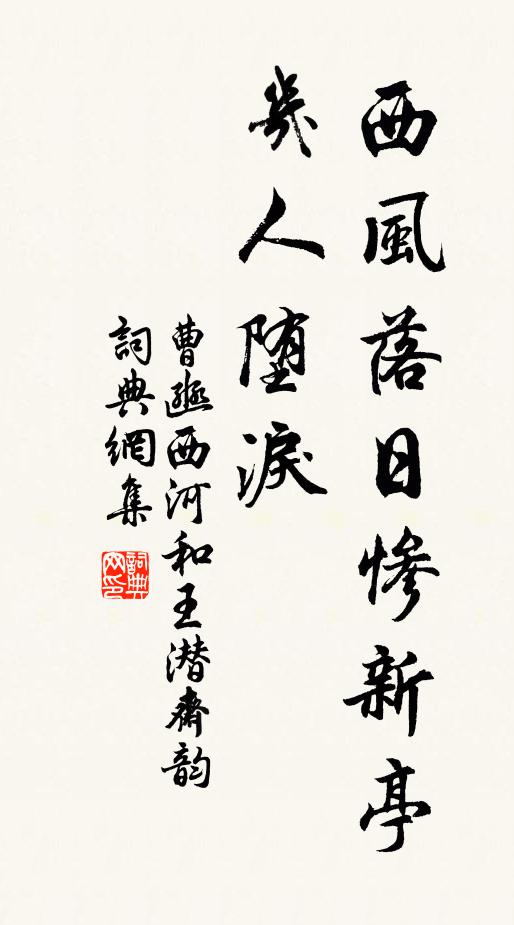 西風落日慘新亭
幾人堕淚
曹豳西河和王潛齋韵
詞典網集
詞典網印